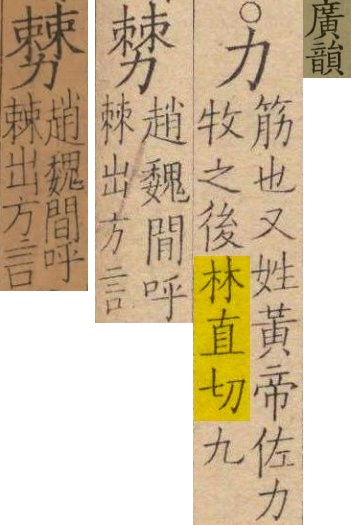 廣韻
○力
筋也又姓黃帝佐力
牧之後林直切九
趙魏間呼
棘出方言
趙魏間呼
棘出方言